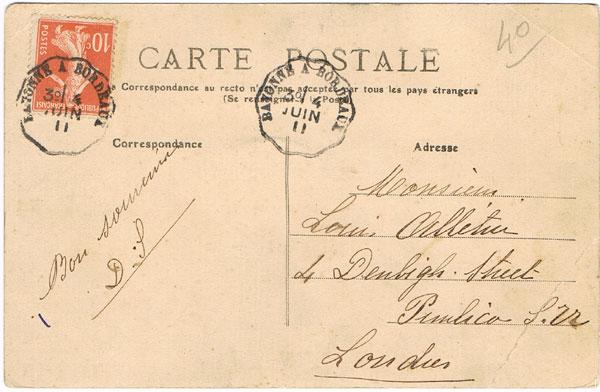 40
10c
POSTES
CARTE POSTALE
BAYONNE A BORDEAUX
3° 4
JUIN
11
BAYONNE A BORDEAUX
3° 4
JUIN
11
La Correspondance au recto n'est pas acceptée par tous les pays étrangers
(Se renseigner à la Poste)
Correspondance
Adresse
Bon souvenir
D. S
Monsieur
Louis
4 Denbigh Street
Pimlico S.W
Londres